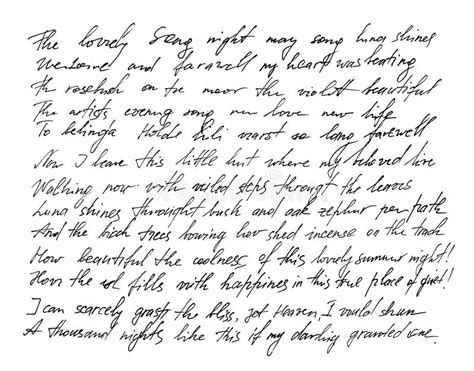 The lovely Song night may song luna shines
Welcome and farewell my heart was beating
th rosebush on the moor the violet beautiful
The artists evening song new love new life
To belinda Holde Lili warst so lang farewell
Now I leave this little hut where my beloved live
Walking now with veiled steps throught the leaves
Luna shines throught bush and oak zephyr per path
And the birch trees bowing low shed incense on the track
How beautiful the coolness of this lovely summer night!
How the soul fills with happiness in this true place of quiet!
I can scarcely grasp the bliss, yet Heaven, I would shun
A thousand nights like this if my darling granted one.